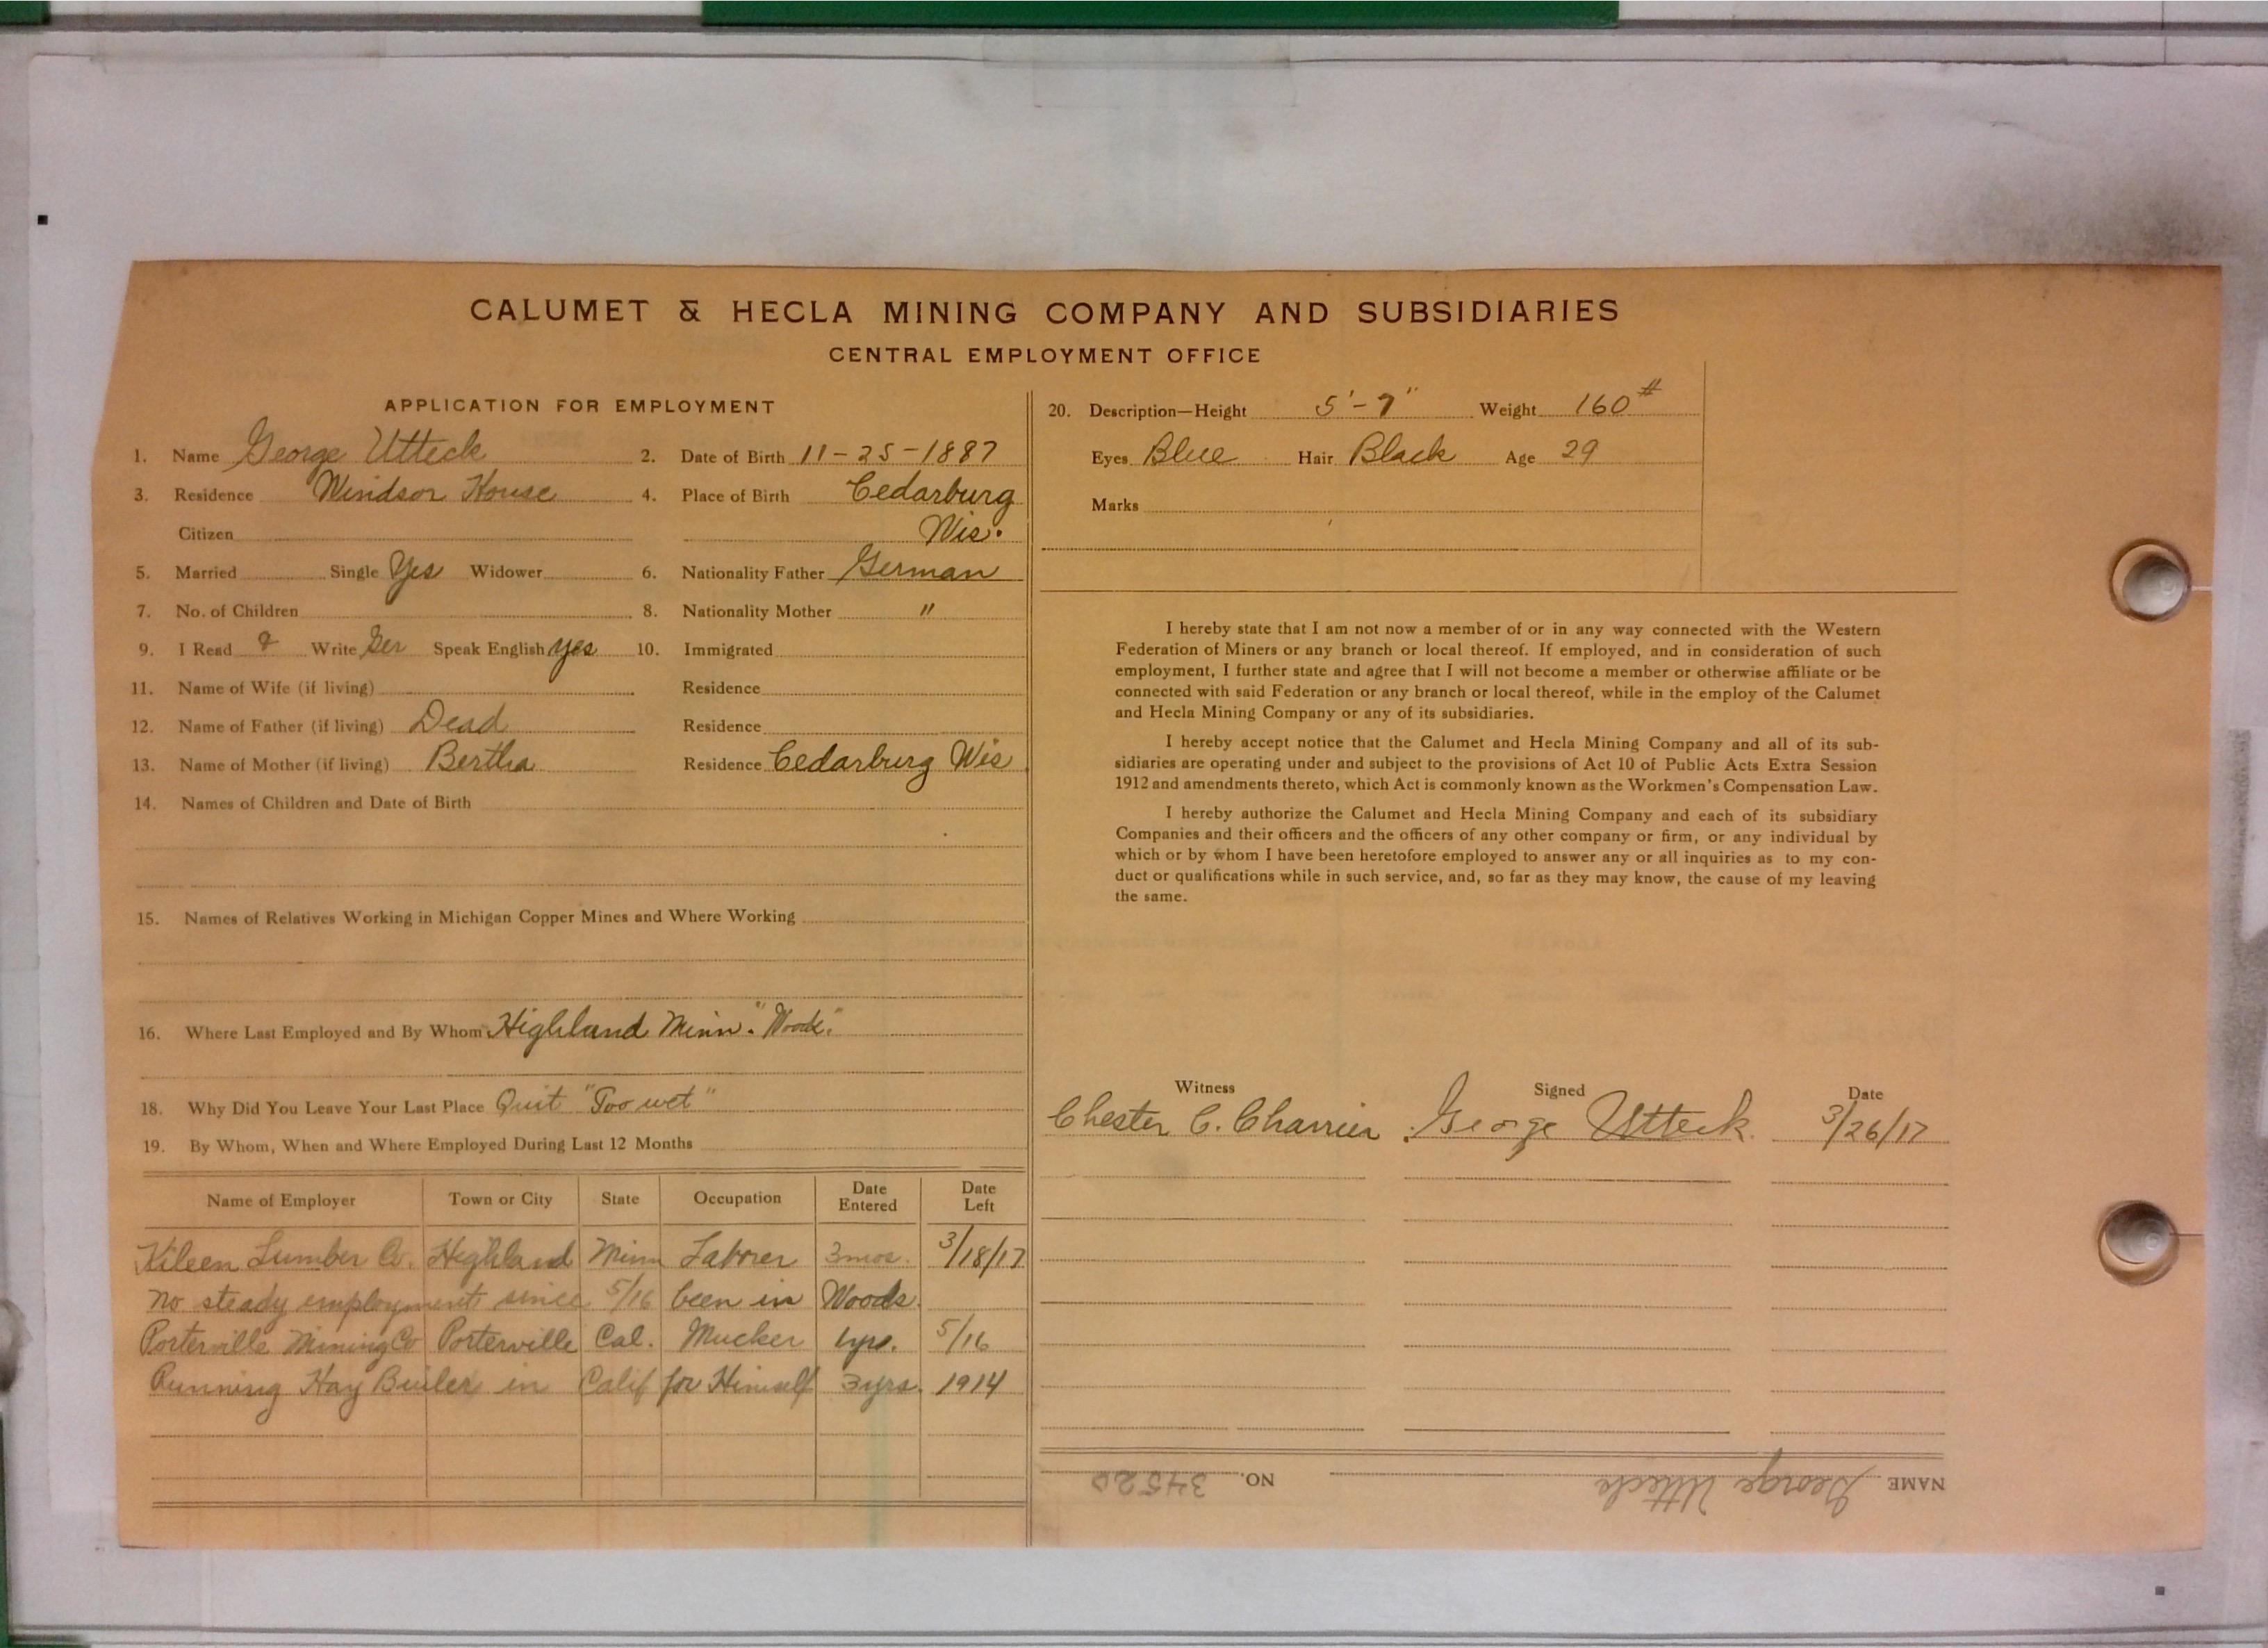 CALUMET & HECLA MINING COMPANY AND SUBSIDIARIES
CENTRAL EMPLOYMENT OFFICE
APPLICATION FOR EMPLOYMENT
1. Name George Utteck 2. Date of Birth 11-25-1887
3. Residence Windsor House 4. Place of Birth Cedarburg
Citizen Wis.
5. Married Single Yes Widower 6. Nationality Father German
7. No. of Children 8. Nationality Mother "
9. I Read & Write Ger Speak English yes 10. Immigrated
11. Name of Wife (if living) Residence
12. Name of Father (if living) Dead Residence
13. Name of Mother (if living) Bertha Residence Cedarburg Wis
14. Names of Children and Date of Birth
15. Names of Relatives Working in Michigan Copper Mines and Where Working
16. Where Last Employed and By Whom Highland Minn. "Woods"
18. Why Did You Leave Your Last Place Quit "Too wet"
19. By Whom, When and Where Employed During Last 12 Months
Name of Employer Town or City State Occupation Date Entered Date Left
Kileen Lumber Co. Highland Minn Laborer 3mos. 3/18/17
No steady employment since 5/16 been in Woods.
Porterville Mining Co Porterville Cal. Mucker 1yr. 5/16
Running Hay Beuler in Calif for Himself 3yrs. 1914
20. Description—Height 5'-7" Weight 160#
Eyes Blue Hair Black Age 29
Marks
I hereby state that I am not now a member of or in any way connected with the Western
Federation of Miners or any branch or local thereof. If employed, and in consideration of such
employment, I further state and agree that I will not become a member or otherwise affiliate or be
connected with said Federation or any branch or local thereof, while in the employ of the Calumet
and Hecla Mining Company or any of its subsidiaries.
I hereby accept notice that the Calumet and Hecla Mining Company and all of its sub-
sidiaries are operating under and subject to the provisions of Act 10 of Public Acts Extra Session
1912 and amendments thereto, which Act is commonly known as the Workmen's Compensation Law.
I hereby authorize the Calumet and Hecla Mining Company and each of its subsidiary
Companies and their officers and the officers of any other company or firm, or any individual by
which or by whom I have been heretofore employed to answer any or all inquiries as to my con-
duct or qualifications while in such service, and, so far as they may know, the cause of my leaving
the same.
Witness Signed Date
Chester C. Charrier George Utteck 3/26/17
NAME George Utteck NO. 34520